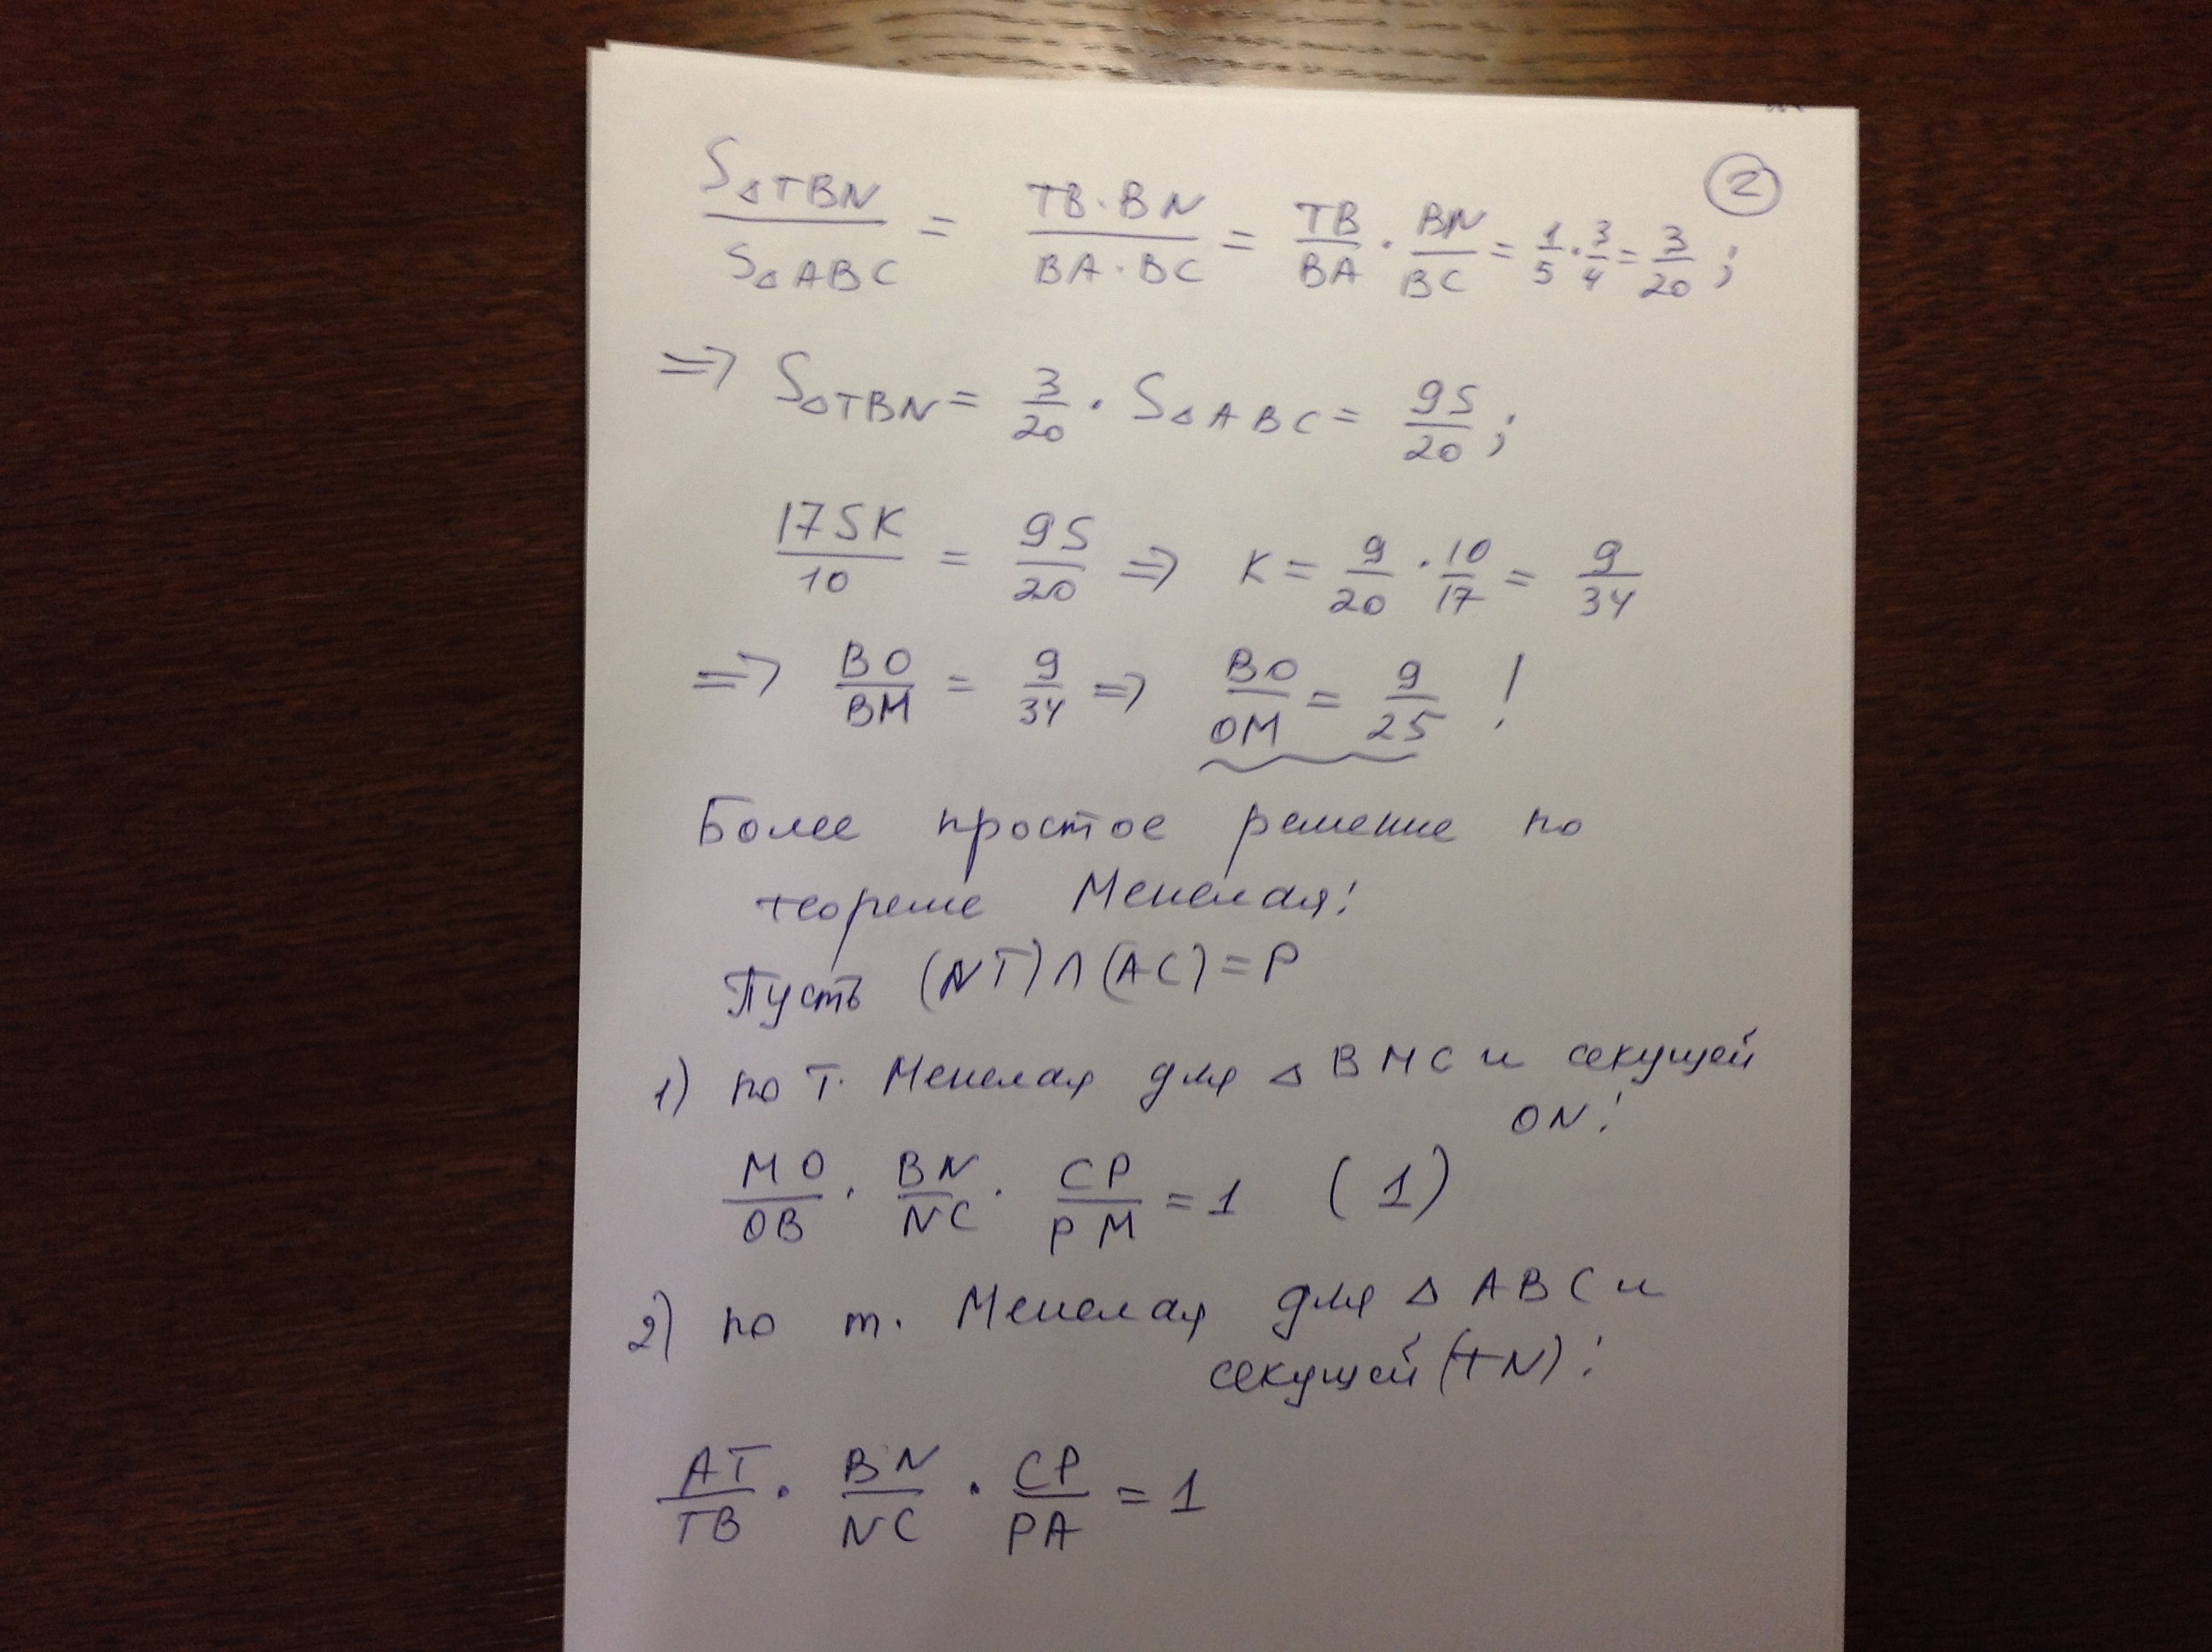 ②
S△TBN / S△ABC = TB·BN / BA·BC = TB/BA · BN/BC = 1/5 · 3/4 = 3/20 ;
=> S△TBN = 3/20 · S△ABC = 9S/20 ;
17SK/10 = 9S/20 => K = 9/20 · 10/17 = 9/34
=> BO/BM = 9/34 => BO/OM = 9/25 !
Более простое решение по
теореме Менелая!
Пусть (NT)∩(AC)=P
1) по т. Менелая для △BMC и секущей
ON:
MO/OB · BN/NC · CP/PM = 1 (1)
2) по т. Менелая для △ABC и
секущей (TN):
AT/TB · BN/NC · CP/PA = 1